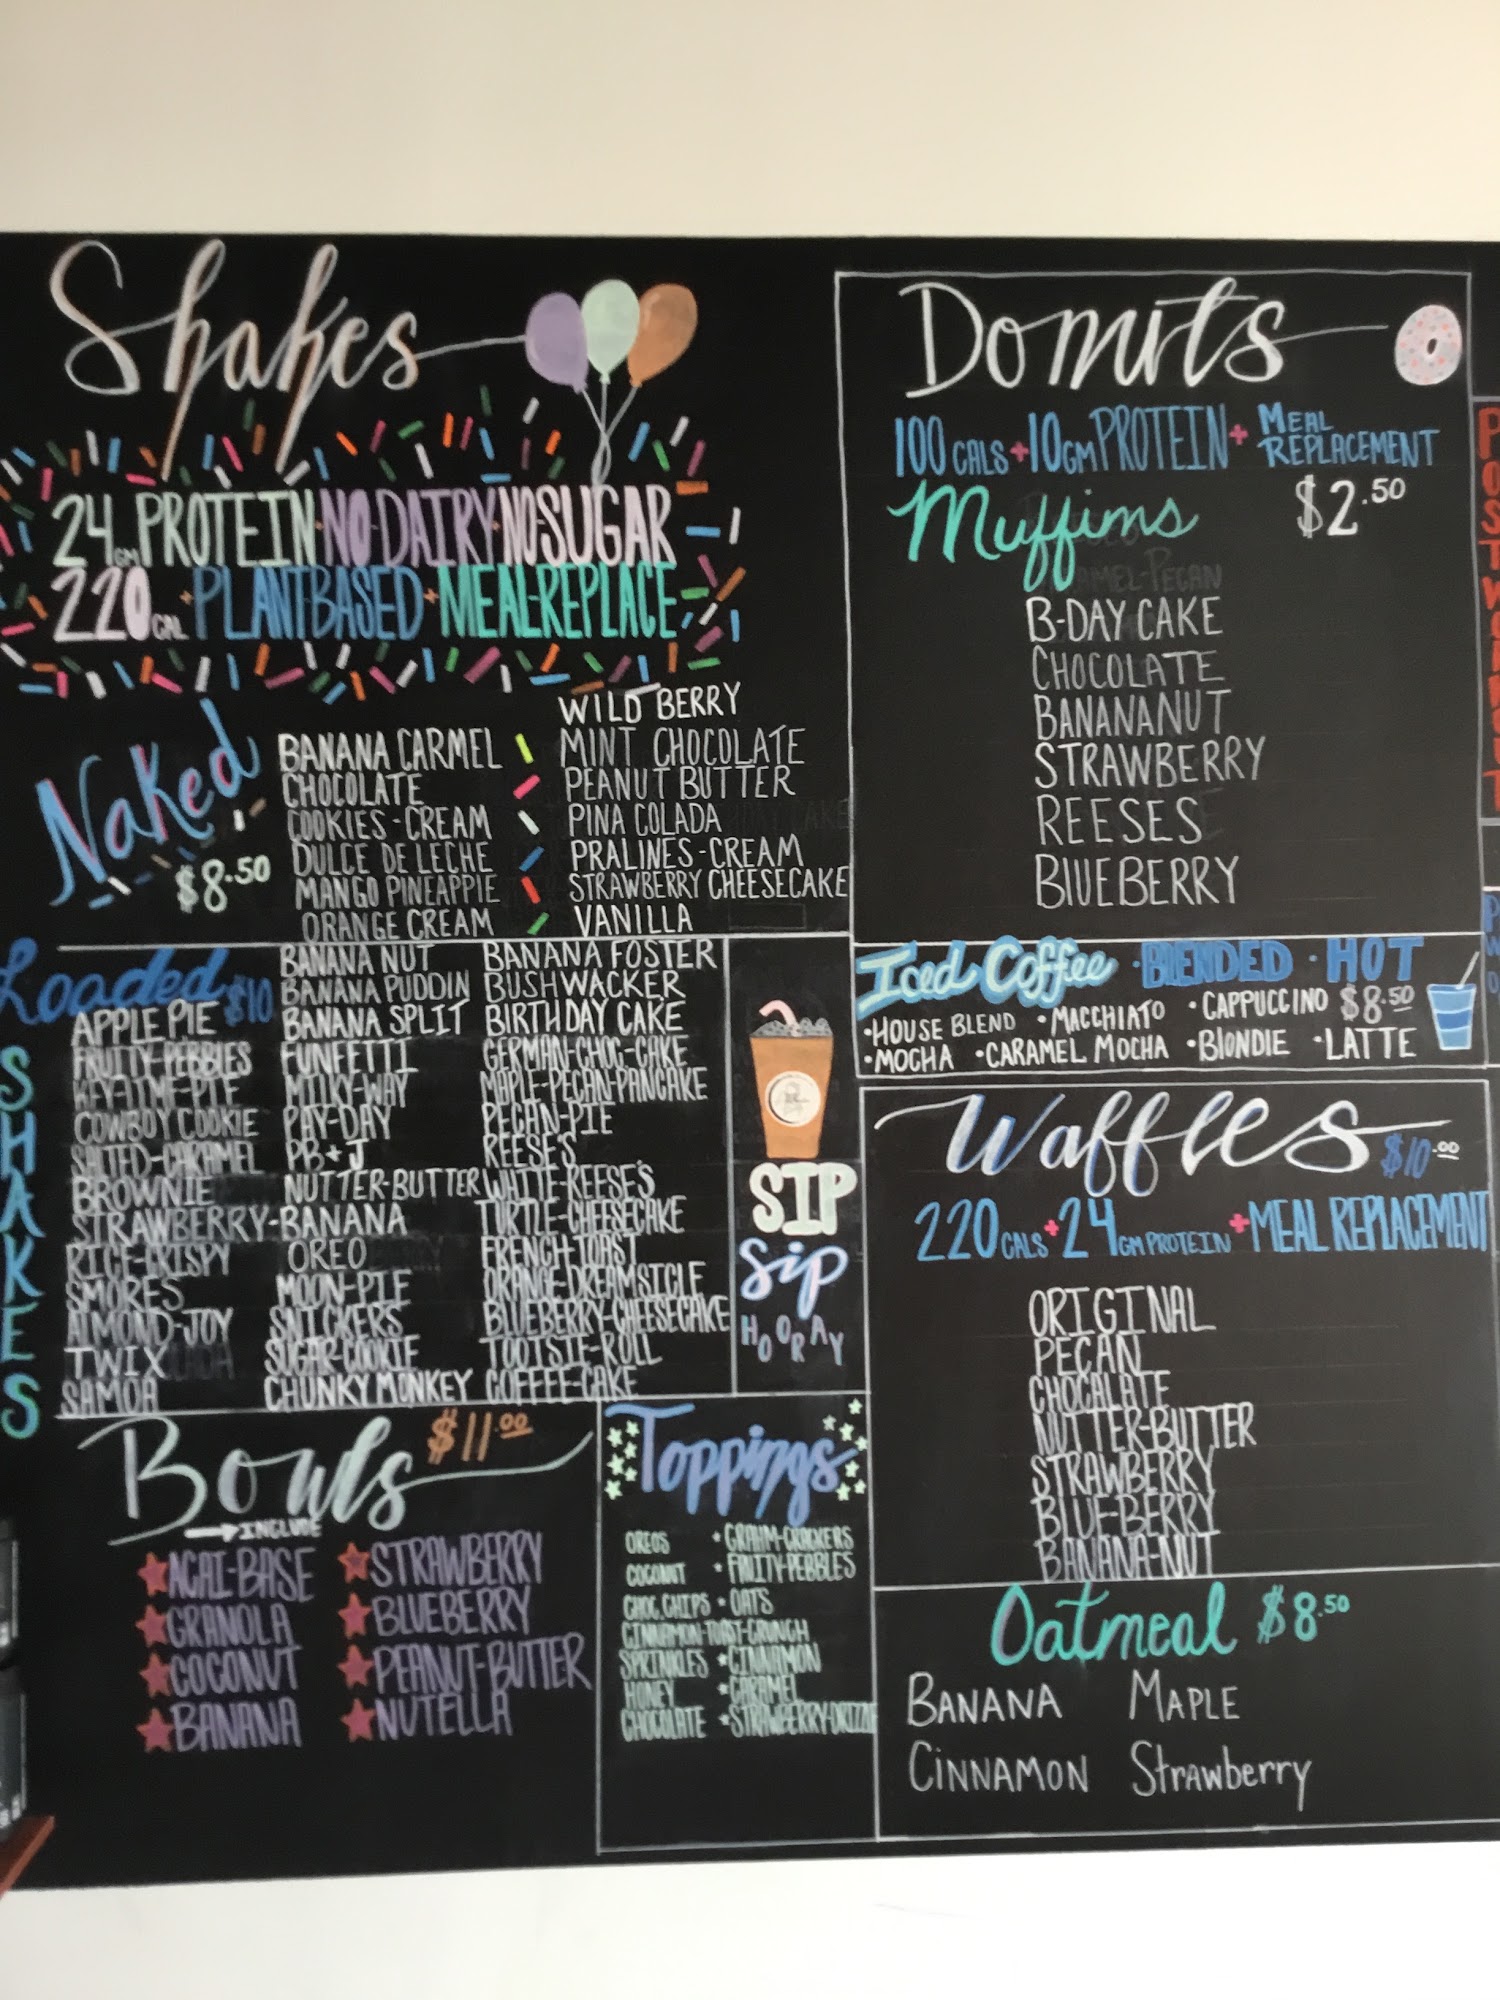 Shakes
24GM PROTEIN + NO DAIRY + NO SUGAR
220CAL + PLANT BASED + MEAL-REPLACE
Naked
$8.50
BANANA CARMEL
CHOCOLATE
COOKIES-CREAM
DULCE DE LECHE
MANGO PINEAPPLE
ORANGE CREAM
WILD BERRY
MINT CHOCOLATE
PEANUT BUTTER
PINA COLADA
PRALINES-CREAM
STRAWBERRY CHEESECAKE
VANILLA
Loaded $10
SHAKES
APPLE PIE
FRUITY-PEBBLES
KEY-LIME-PIE
COWBOY COOKIE
SALTED-CARAMEL
BROWNIE
STRAWBERRY-BANANA
RICE-CRISPY
SMORES
ALMOND-JOY
TWIX
SAMOA
BANANA NUT
BANANA PUDDIN
BANANA SPLIT
FUNFETTI
MILKY-WAY
PAY-DAY
PB+J
NUTTER-BUTTER
OREO
MOON-PIE
SNICKERS
SUGAR-COOKIE
CHUNKY MONKEY
BANANA FOSTER
BUSHWACKER
BIRTHDAY CAKE
GERMAN-CHOC-CAKE
MAPLE-PECAN-PANCAKE
PECAN-PIE
REESE'S
WHITE-REESE'S
TURTLE-CHEESECAKE
FRENCH-TOAST
ORANGE-DREAMSICLE
BLUEBERRY-CHEESECAKE
TOOTSIE-ROLL
COFFEE-CAKE
SIP
Sip
HOORAY
Bowls $11.00
INCLUDE
ACAI-BASE
GRANOLA
COCONUT
BANANA
STRAWBERRY
BLUEBERRY
PEANUT-BUTTER
NUTELLA
Toppings
OREOS • GRAHM-CRACKERS
COCONUT • FRUITY-PEBBLES
CHOC.CHIPS • OATS
CINNAMON-TOAST-CRUNCH
SPRINKLES • CINNAMON
HONEY • CARAMEL
CHOCOLATE • STRAWBERRY-DRIZZLE
Donuts
100 CALS + 10GM PROTEIN + MEAL REPLACEMENT
Muffins $2.50
B-DAY CAKE
CHOCOLATE
BANANANUT
STRAWBERRY
REESES
BLUEBERRY
Iced Coffee • BLENDED • HOT
• HOUSE BLEND • MACCHIATO • CAPPUCCINO $8.50
• MOCHA • CARAMEL MOCHA • BLONDIE • LATTE
Waffles $10.00
220 CALS + 24GM PROTEIN + MEAL REPLACEMENT
ORIGINAL
PECAN
CHOCALATE
NUTTER-BUTTER
STRAWBERRY
BLUE-BERRY
BANANA-NUT
Oatmeal $8.50
BANANA MAPLE
CINNAMON Strawberry
POSTWORKOUT